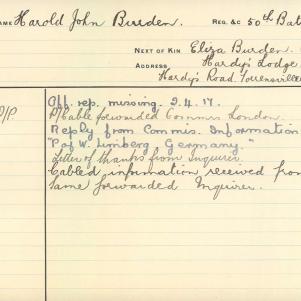 NAME Harold John Burden. REG. &C 50th Bat
NEXT OF KIN Eliza Burden.
ADDRESS Hardy's Lodge
Hardy's Road. Torrensville
D/P Off. rep. missing. 2.4.17.
P/Cable forwarded Commrs London.
Reply from Commis. Information
"P of W. Limberg Germany."
Letter of thanks from Inquirer.
Cabled information received from
same forwarded Inquirer.